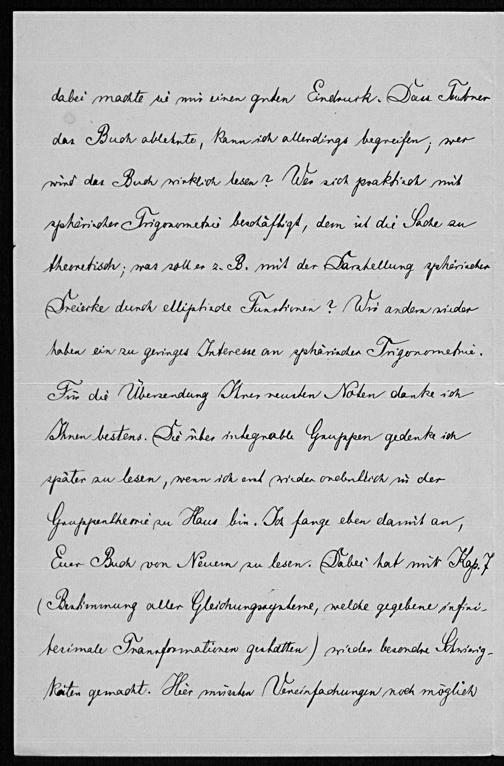 dabei machte sie mir einen guten Eindruck. Dass Teubner
das Buch ablehnte, kann ich allerdings begreifen; wer
wird das Buch wirklich lesen? Wer sich praktisch mit
sphärischer Trigonometrie beschäftigt, dem ist die Sache zu
theoretisch; was soll er z. B. mit der Darstellung sphärischer
Dreiecke durch elliptische Functionen? Wir andern wieder
haben ein zu geringes Interesse an sphärischer Trigonometrie.
Für die Übersendung Ihrer neusten Noten danke ich
Ihnen bestens. Die über integrable Gruppen gedenke ich
später zu lesen, wenn ich erst wieder ordentlich in der
Gruppentheorie zu Haus bin. Ich fange eben damit an,
Euer Buch von Neuem zu lesen. Dabei hat mir Kap. 7
(Bestimmung aller Gleichungssysteme, welche gegebene infini-
tesimale Transformationen gestatten) wieder besondre Schwierig-
keiten gemacht. Hier müssten Vereinfachungen noch möglich